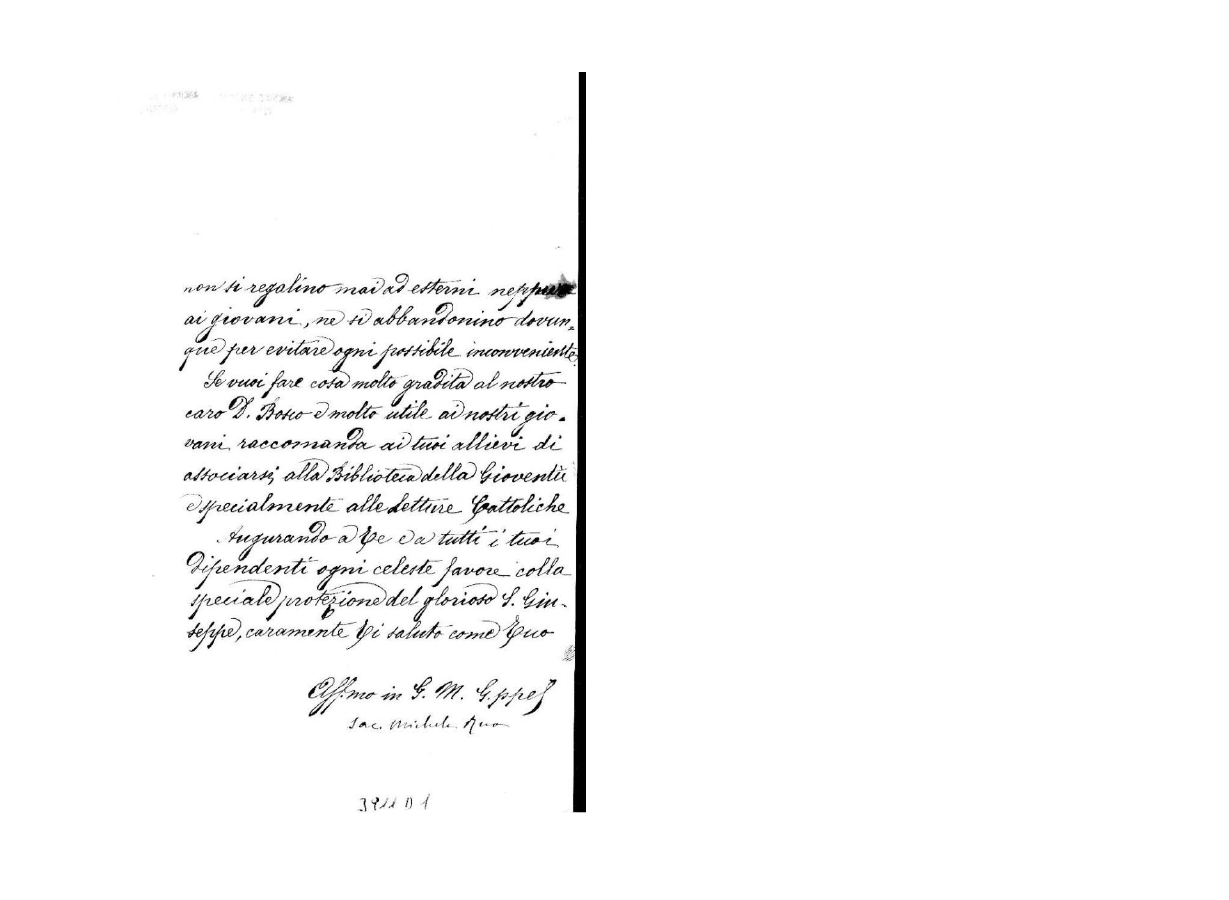 non si regalino mai ad esterni neppure
ai giovani, ne si abbandonino dovun=
que per evitare ogni possibile inconveniente.
Se vuoi fare cosa molto gradita al nostro
caro D. Bosco e molto utile ai nostri gio-
vani raccomanda ai tuoi allievi di
associarsi alla Biblioteca della Gioventù
e specialmente alle Letture Cattoliche
Augurando a Te e a tutti i tuoi
dipendenti ogni celeste favore colla
speciale protezione del glorioso S. Giu-
seppe, caramente Ti saluto come Tuo
Aff.mo in G. M. G.ppe
Sac. Michele Rua
3911 D 1